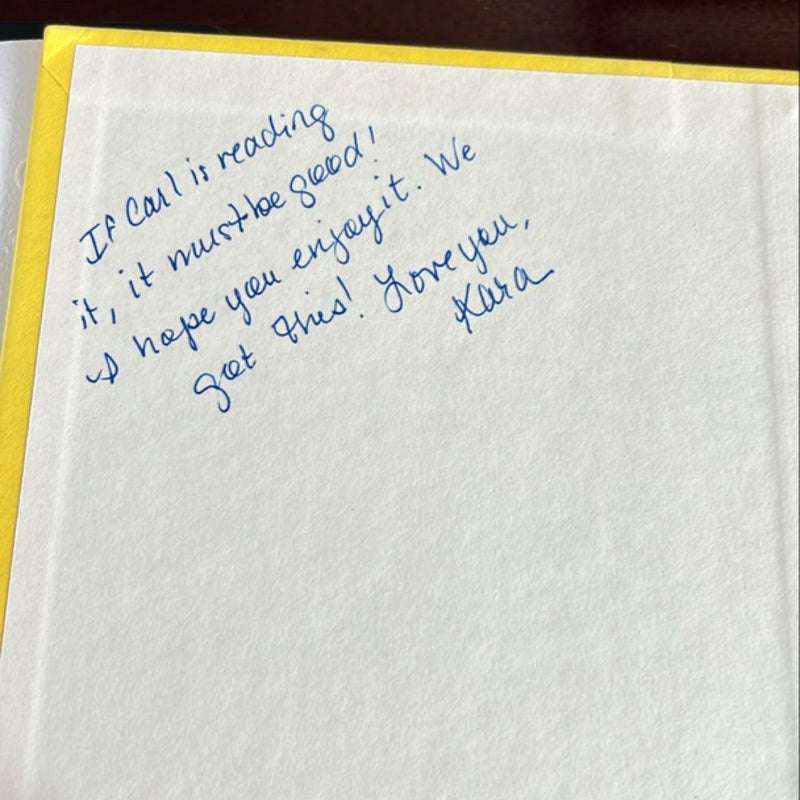 If Carl is reading
it, it must be good!
I hope you enjoy it. We
got this! Love you,
Kara